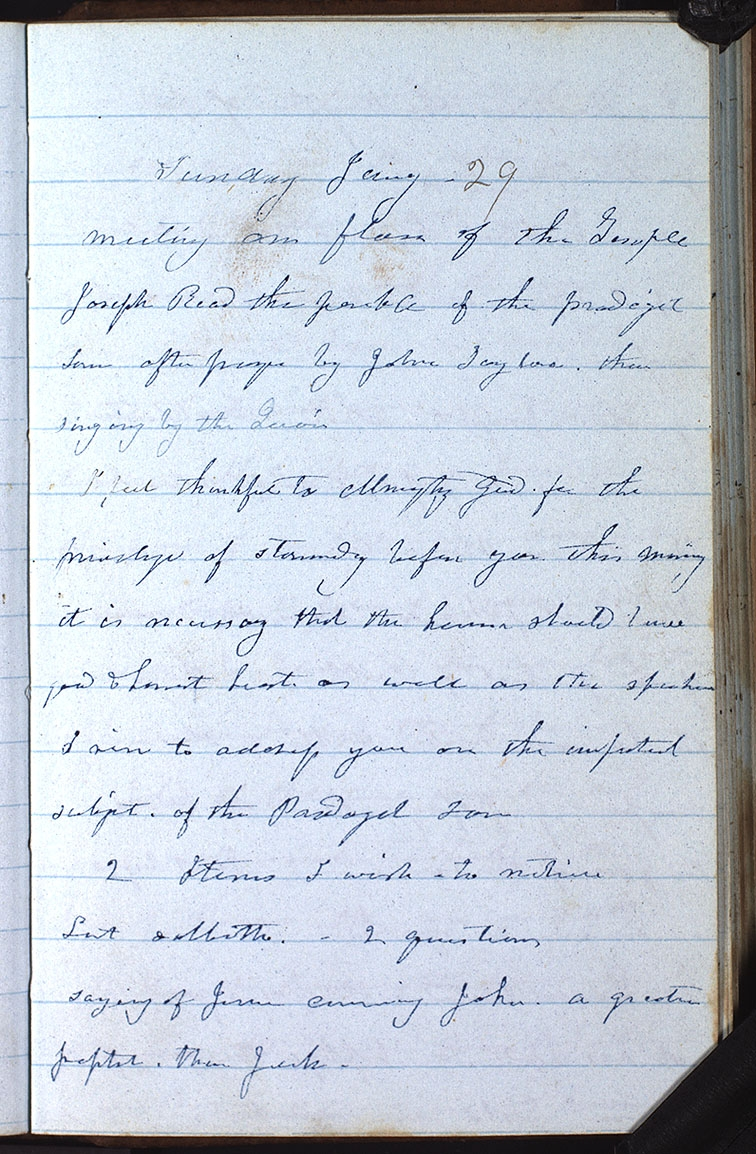 Sunday Jany 29
meeting on floor of the Temple
Joseph Read the parable of the prodigal
son after prayer by John Taylor. then
singing by the Quoir
I feel thankful to Almighty God for the
privilege of standing before you this morning
it is necessary that the hearers should have
good & honest heart as well as the speaker
I rise to address you on the important
subject. of the Prodigal son
2 Items I wish to notice
Last sabbath. - 2 questions
saying of Jesus concerning John. a greater
prophet. than